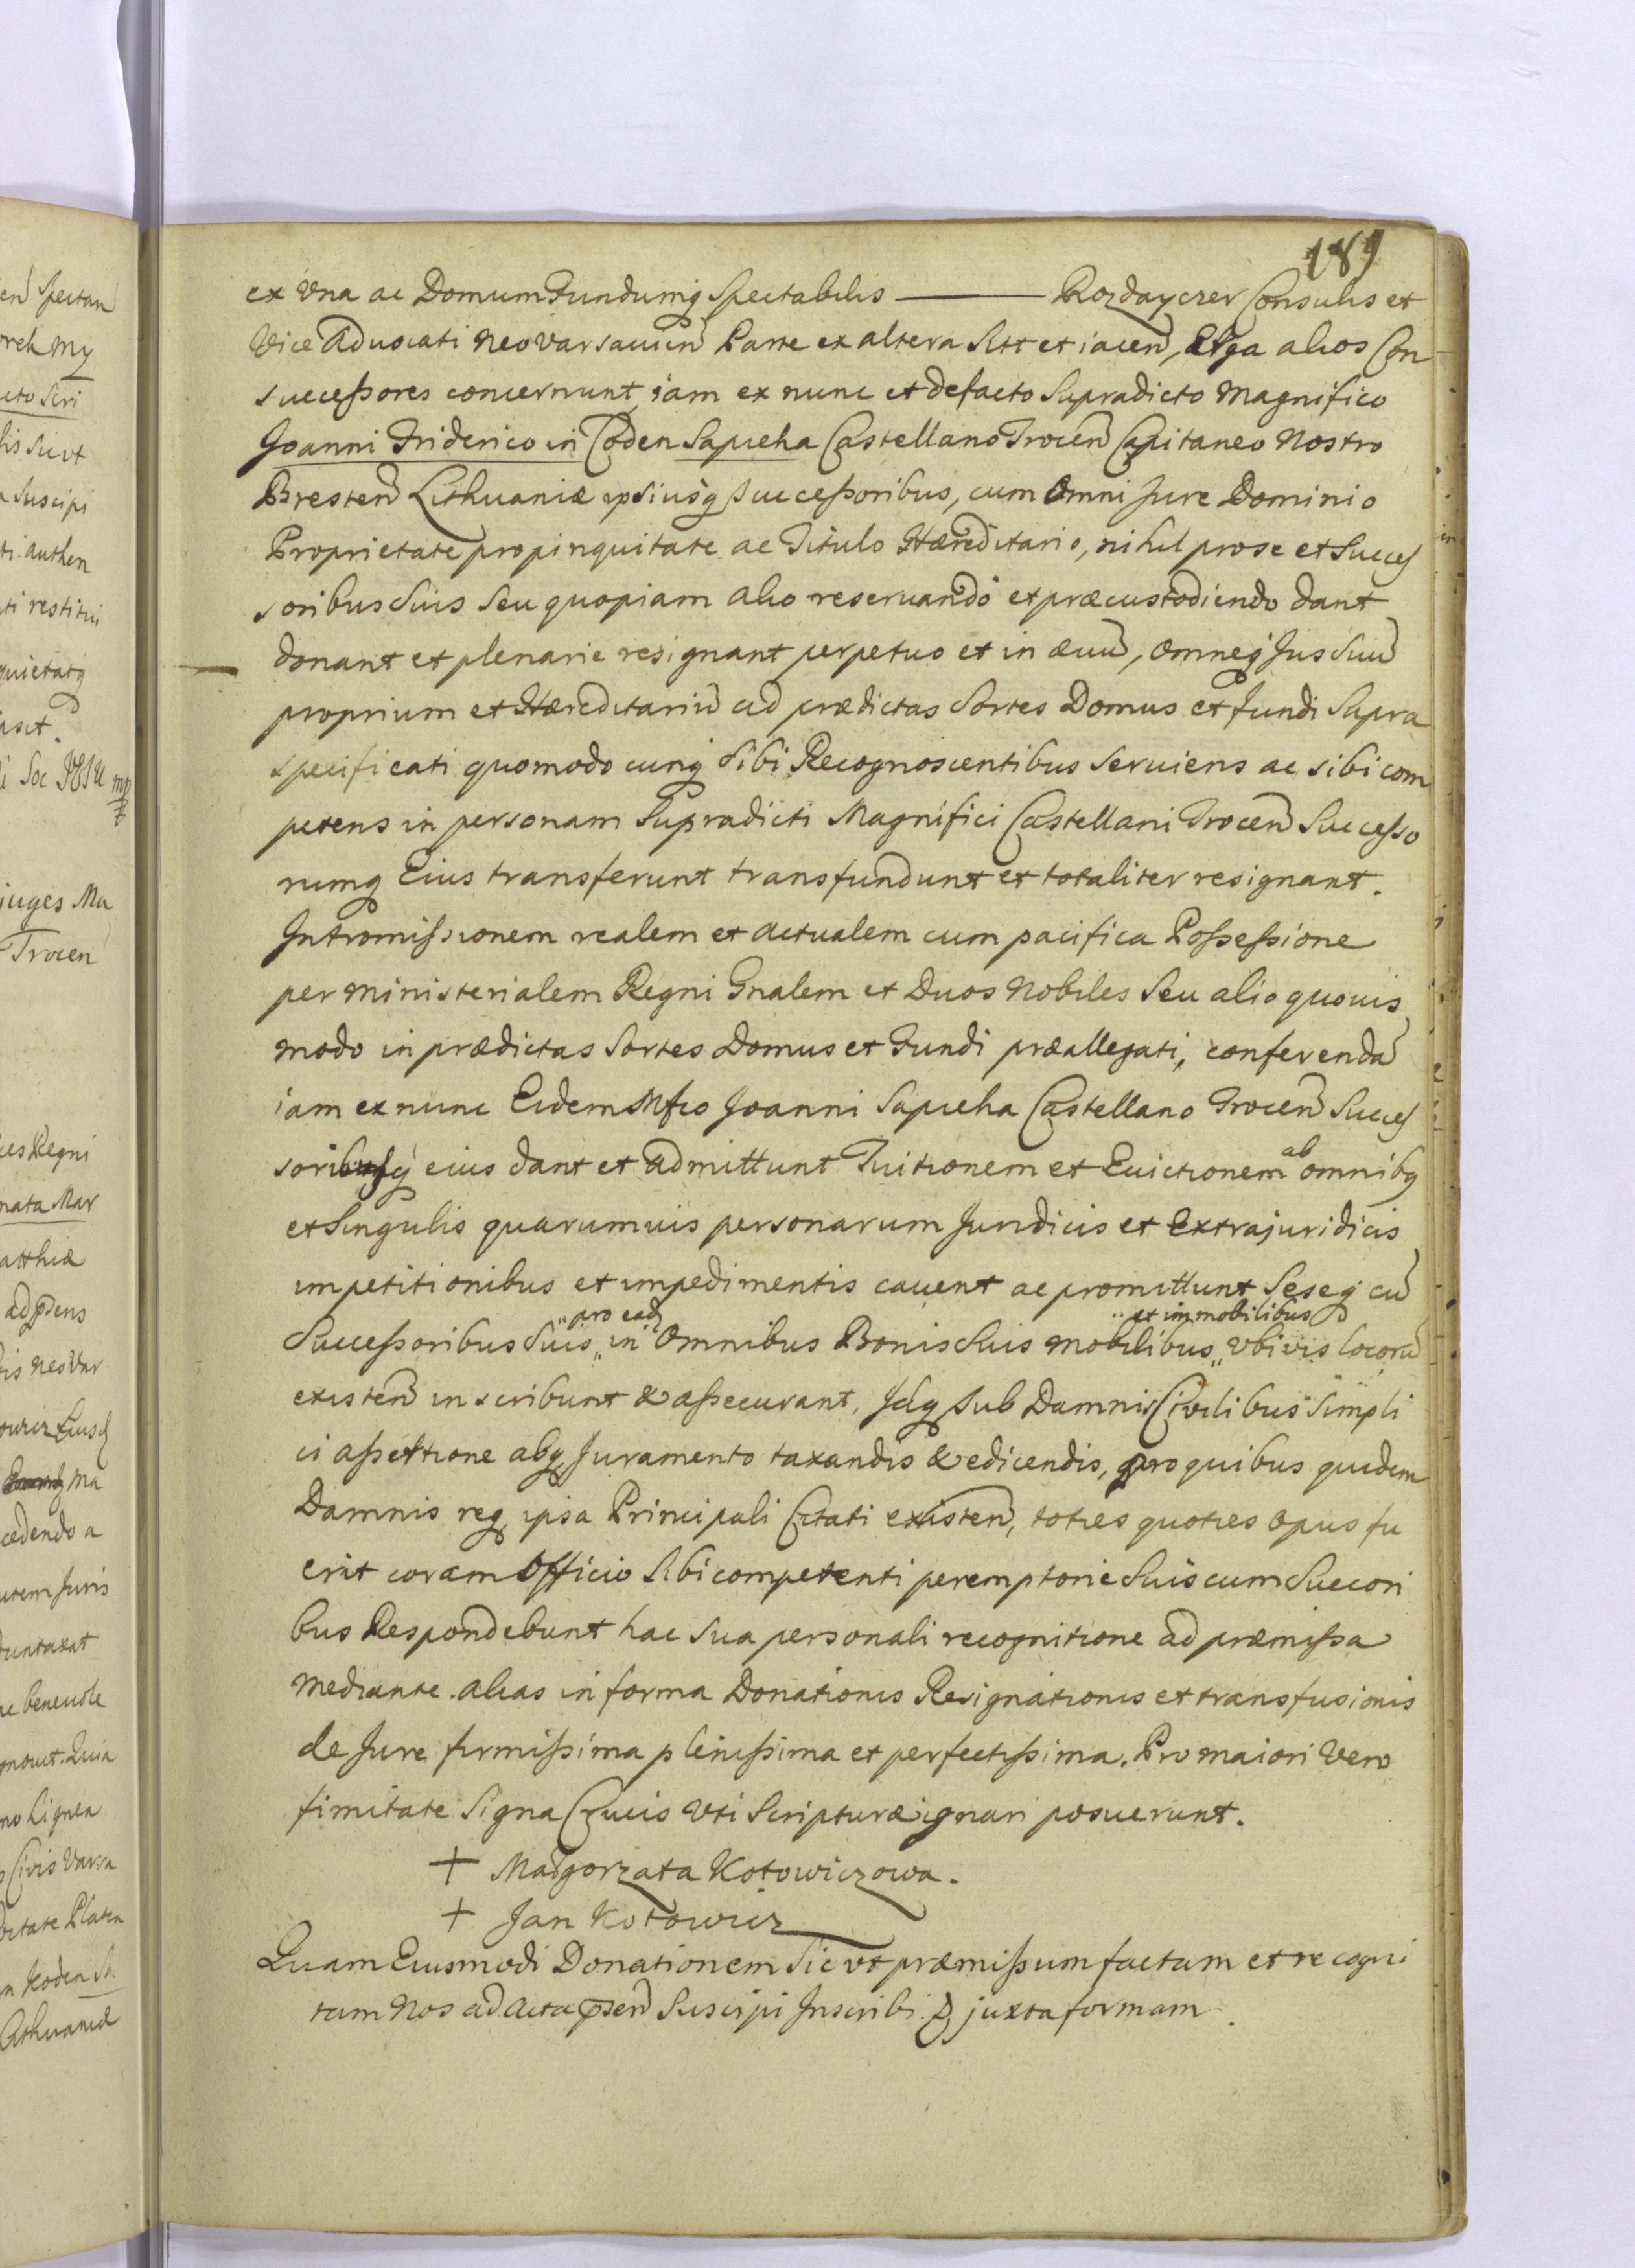 189
ex Vna ac Domum Fundumq Spectabilis ——— Rozdayczer Consulis et
Vice Aduocati Neo Varsauien Parte ex altera Sitt et iacen, Erga alios Con
successores concernunt, iam ex nunc et defacto Supradicto Magnifico
Joanni Friderico in Coden Sapieha Castellano Trocen Capitaneo Nostro
Bresten Lithuaniæ ipsiusq Successoribus, cum Omni Jure Dominio
Proprietate propinquitate ac Titulo Hæreditario, nihil pro se et Succes
soribus Suis Seu quopiam alio reseruando et præcustodiendo dant
donant et plenarie resignant perpetuo et in æuu, omneq Jus Suu
proprium et Hæreditariu ad prædictas Sortes Domus et fundi Supra
specificati quomodocunq Sibi Recognoscentibus Seruiens ac sibi com
petens in personam Supradicti Magnifici Castellani Trocen Successo
rumq Eius transferunt transfundunt et totaliter resignant.
Intromissionem realem et actualem cum pacifica Possessione
per Ministerialem Regni Gnalem et Duos Nobiles Seu alio quouis
modo in prædictas Sortes Domus et Fundi præallegati, conferenda
iam ex nunc Eidem Mfco Joanni Sapieha Castellano Trocen Succes
soribusq eius dant et admittunt Tuitionem et Euictionem ab omnibq
et Singulis quarumuis personarum Juridicis et Extrajuridicis
impetitionibus et impedimentis cauent ac promittunt Seseq cu
pro ead et immobilibus
Successoribus Suis „ in Omnibus Bonis Suis mobilibus „ vbiuis locoru
existen inscribunt & assecurant, Idq sub Damnis Civilibus Simpli
ci assertione absq Juramento taxandis & edicendis, pro quibus quidem
Damnis req ipsa Principali Citati existen, toties quoties opus fu
erit coram Officio Sibi competenti peremptorie Suis cum Succori
bus Respondebunt hac Sua personali recognitione ad præmissa
mediante. alias in forma Donationis Resignationis et transfusionis
de Jure firmissima plenissima et perfectissima. Pro maiori Vero
fimitate Signa Crucis Vti Scripturæ ignari posuerunt.
+ Małgorzata Kotowiczowa.
+ Jan Kotowicz
Quam Eiusmodi Donationem Sic vt præmissum factam et recogni
tam Nos ad Acta psen Suscipi Inscribi & juxta formam.